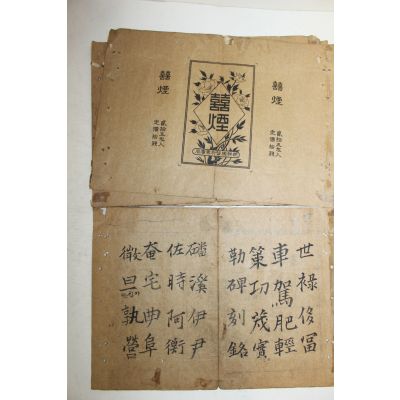 囍煙
定價拾錢
囍煙
囍煙
定價拾錢
世祿侈富
車駕肥輕
策功茂實
勒碑刻銘
磻溪伊尹
佐時阿衡
奄宅曲阜
微旦孰營